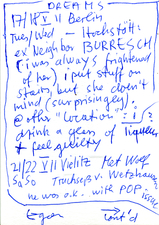 DREAMS
17/18 V II Berlin
Tues/Wed — Hochstätt:
ex Neighbor BURRESCH
(i was always frightened
of her) i put stuff on
stairs, but she doesn't
mind (surprisingly).
@ other "location":
drink a glass of liqueur
& feel guilty
21/22 V II Vielitz Met Wolf
Sa So Truchsess v. Wetzhausen
he was o.k. with POP
Egon cont'd